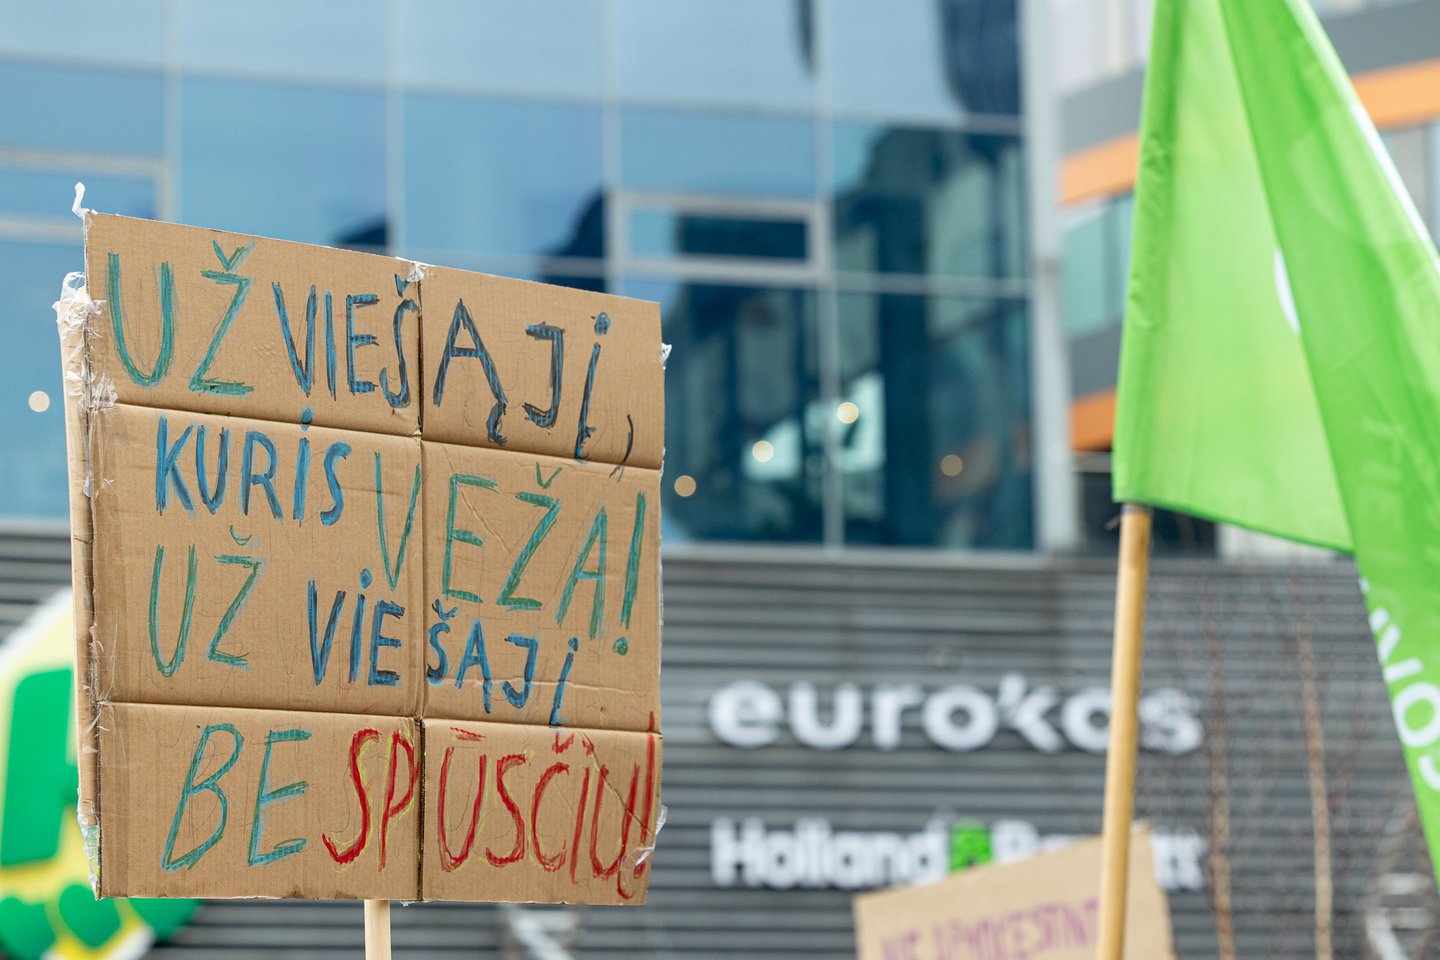 UŽ VIEŠĄJĮ,
KURIS VEŽA!
UŽ VIEŠĄJĮ
BE SPŪSČIŲ!
eurokos
Holland